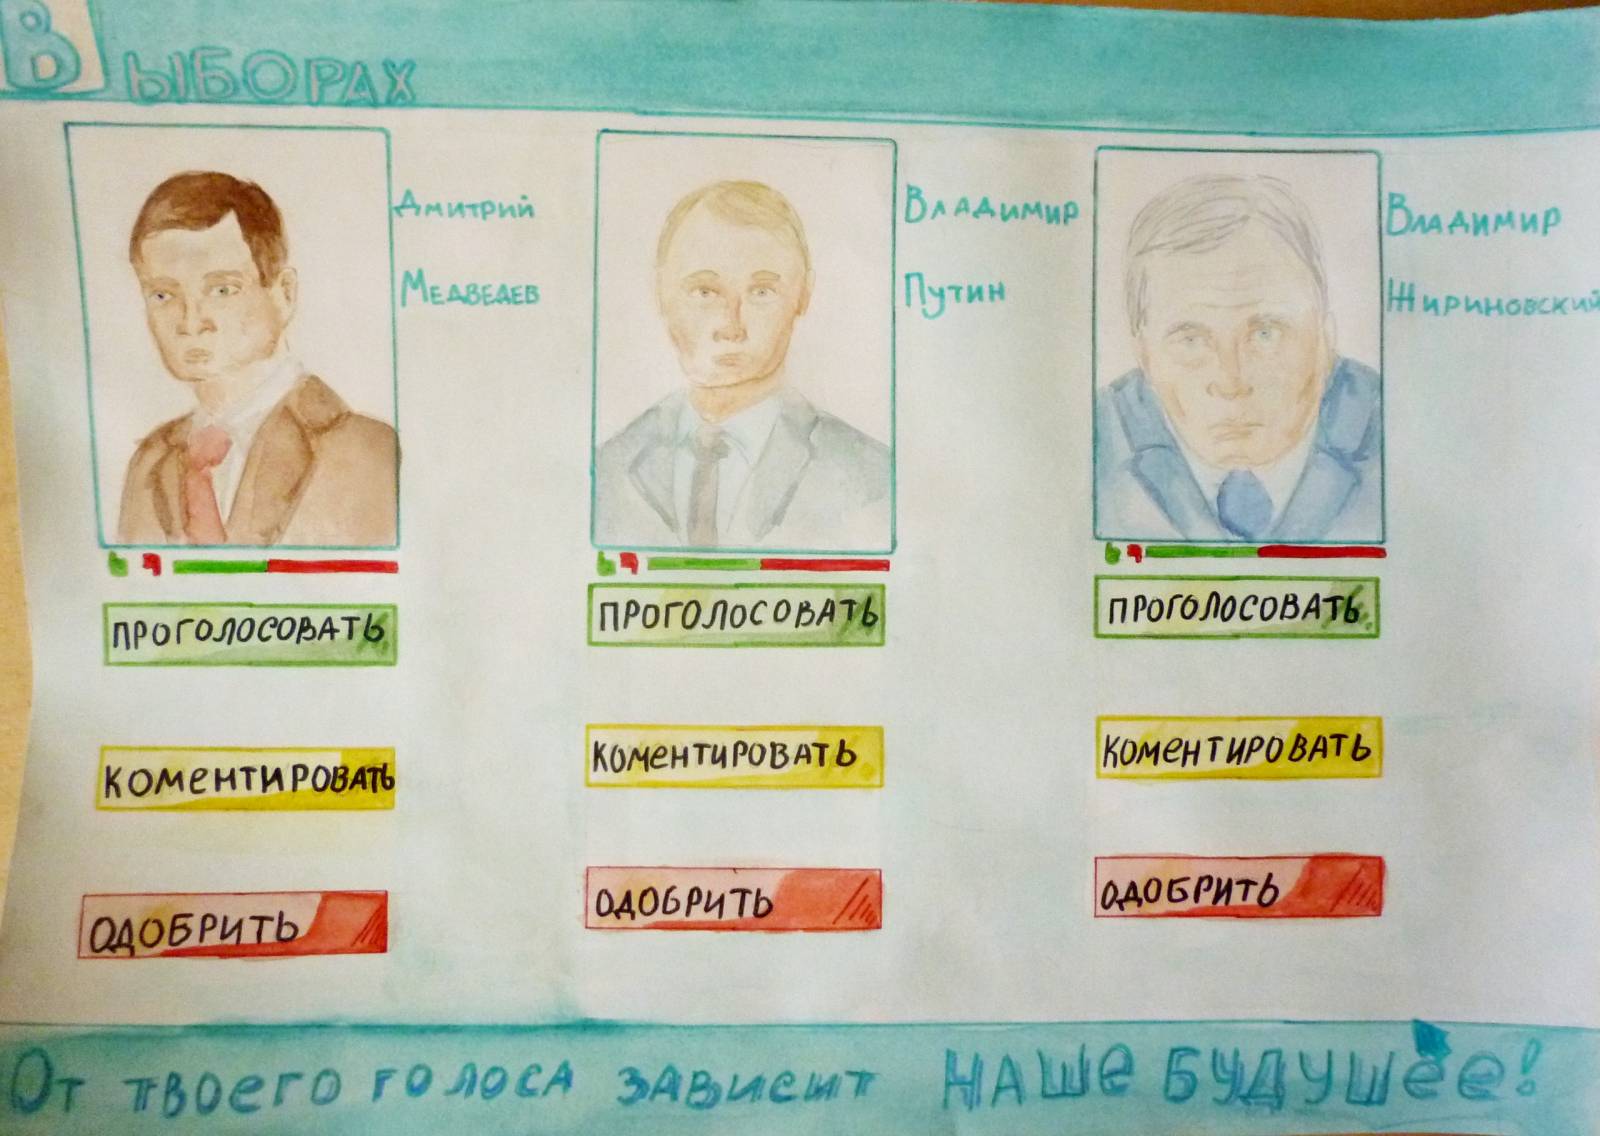 Выборах
Дмитрий
Медведев
Владимир
Путин
Владимир
Жириновский
ПРОГОЛОСОВАТЬ
ПРОГОЛОСОВАТЬ
ПРОГОЛОСОВАТЬ
КОМЕНТИРОВАТЬ
КОМЕНТИРОВАТЬ
КОМЕНТИРОВАТЬ
ОДОБРИТЬ
ОДОБРИТЬ
ОДОБРИТЬ
От твоего голоса зависит НАШЕ БУДУЩЕЕ!